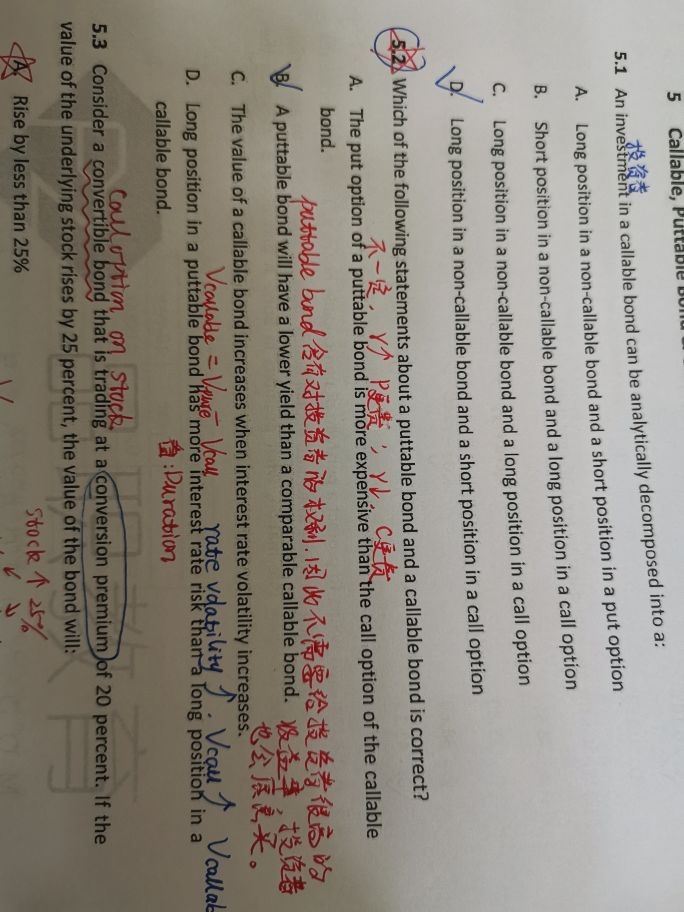 5 Callable, Puttable Bond
投资者
5.1 An investment in a callable bond can be analytically decomposed into a:
A. Long position in a non-callable bond and a short position in a put option
B. Short position in a non-callable bond and a long position in a call option
C. Long position in a non-callable bond and a long position in a call option
D. Long position in a non-callable bond and a short position in a call option
5.2 Which of the following statements about a puttable bond and a callable bond is correct?
不一定, r↑ P更贵; r↓, C更贵
A. The put option of a puttable bond is more expensive than the call option of the callable
bond.
puttable bond 含有对投资者的权利.因此不需要给投资者很高的
收益率,投资者
也会愿意买。
B. A puttable bond will have a lower yield than a comparable callable bond.
C. The value of a callable bond increases when interest rate volatility increases.
Vcallable = V - Vcall rate volatility ↑. Vcall ↑ Vcallab
D. Long position in a puttable bond has more interest rate risk than a long position in a
callable bond.
:Duration
Call option on stock
5.3 Consider a convertible bond that is trading at a conversion premium of 20 percent. If the
value of the underlying stock rises by 25 percent, the value of the bond will:
stock ↑ 25%
A. Rise by less than 25%